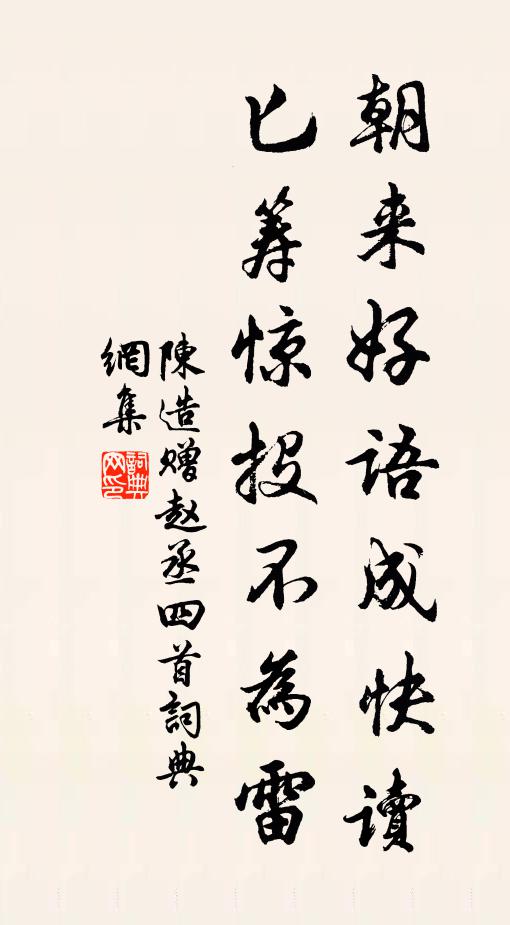 朝来好语成快读
匕筹惊投不为雷
陈造赠赵丞四首词典
網集
詞典網印